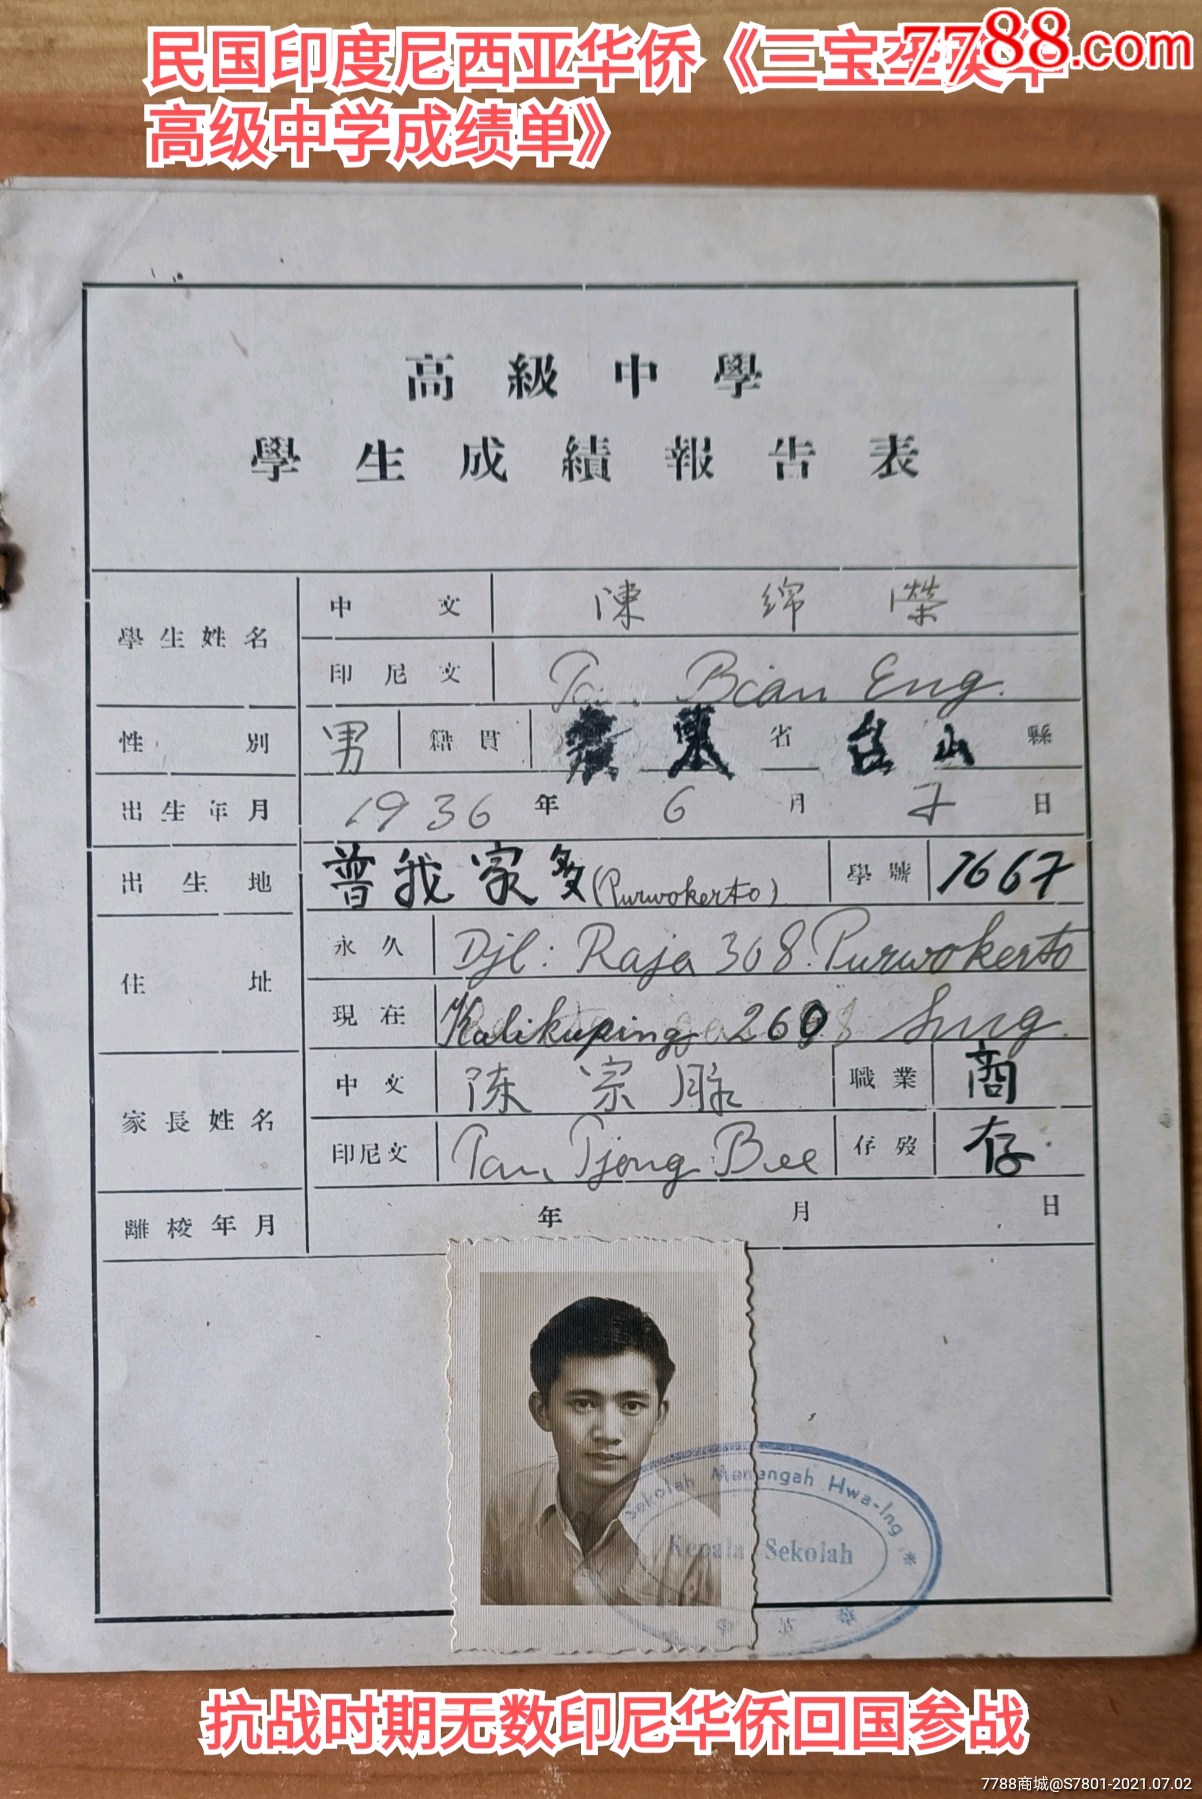 民国印度尼西亚华侨《三宝垄英华
7788.com
高级中学成绩单》
高級中學
學生成績報告表
學生姓名 中文 陳綿榮
印尼文 Tan Bian Eng.
性別 男 籍貫 廣東省 台山縣
出生年月 1936年 6月 7日
出生地 普我家多(Purwokerto) 學號 1667
住址 永久 Djl: Raja 308. Purwokerto
現在 Kalikuping 260 Smg.
家長姓名 中文 陈宗脉 職業 商
印尼文 Tan Tjong Bee 存歿 存
離校年月 年 月 日
Sekolah Menengah Hwa-Ing
Kepala Sekolah
抗战时期无数印尼华侨回国参战
7788商城@S7801-2021.07.02